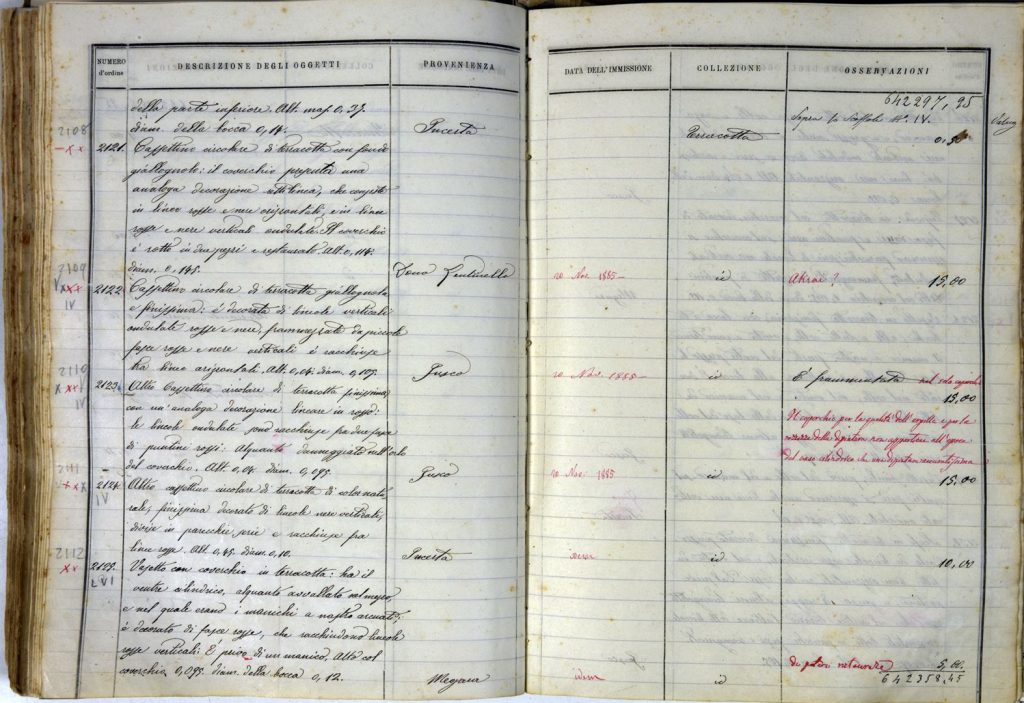 NUMERO d'ordine
DESCRIZIONE DEGLI OGGETTI
PROVENIENZA
della parte inferiore. Alt. mass. 0,37.
diam. della bocca 0,14.
Incerta
2108
2121. Cassettino circolare di terracotta con fondo
giallognolo: il coverchio presenta una
analoga decorazione che consiste
in linee rosse e nere orizzontali, e in linee
rosse e nere verticali ondulate. Il coverchio
è rotto in due pezzi e restaurato. Alt. 0,114.
diam. 0,145.
2109
2122. Cassettino circolare di terracotta giallognola
IV
e finissima: è decorata di lineole verticali
ondulate rosse e nere, frammezzate da piccole
fasce rosse e nere verticali e racchiuse
tra linee orizzontali. Alt. 0,04. diam. 0,107.
Fusco
2110
2123. Altro Cassettino circolare di terracotta finissima
IV
con un'analoga decorazione lineare in rosso:
le lineole ondulate sono racchiuse fra due fasce
di puntini rossi. Alquanto danneggiato nell'orlo
del coverchio. Alt. 0,04. diam. 0,095.
Fusco
2111
2124. Altro cassettino circolare di terracotta di color natu-
IV
rale, finissima decorato di lineole nere verticali,
divise in parecchie serie e racchiuse fra
linee rosse. Alt. 0,45. diam. 0,10.
Incerta
2112
2125. Vasetto con coverchio in terracotta: ha il
LVI
ventre cilindrico, alquanto avvallato nel mezzo,
e nel quale erano i manichi a nastro arcuati:
è decorato di fasce rosse, che racchiudono lineole
rosse verticali. È privo di un manico. Alto col
coverchio 0,095. diam. della bocca 0,12.
Megara
DATA DELL'IMMISSIONE
COLLEZIONE
OSSERVAZIONI
642297,95
Sopra lo Scaffale N.º IV.
Terracotta
0.50
20 Nov. 1885
id
Akrai?
15,00
20 Nov. 1885
id
È frammentata nel solo coperchio
15,00
Il coperchio per la qualità dell'argilla e per la
della dipintura non appartiene all'epoca
del vaso
20 Nov. 1885
id
15,00
idem
id
10,00
idem
id
5,00.
642358,45